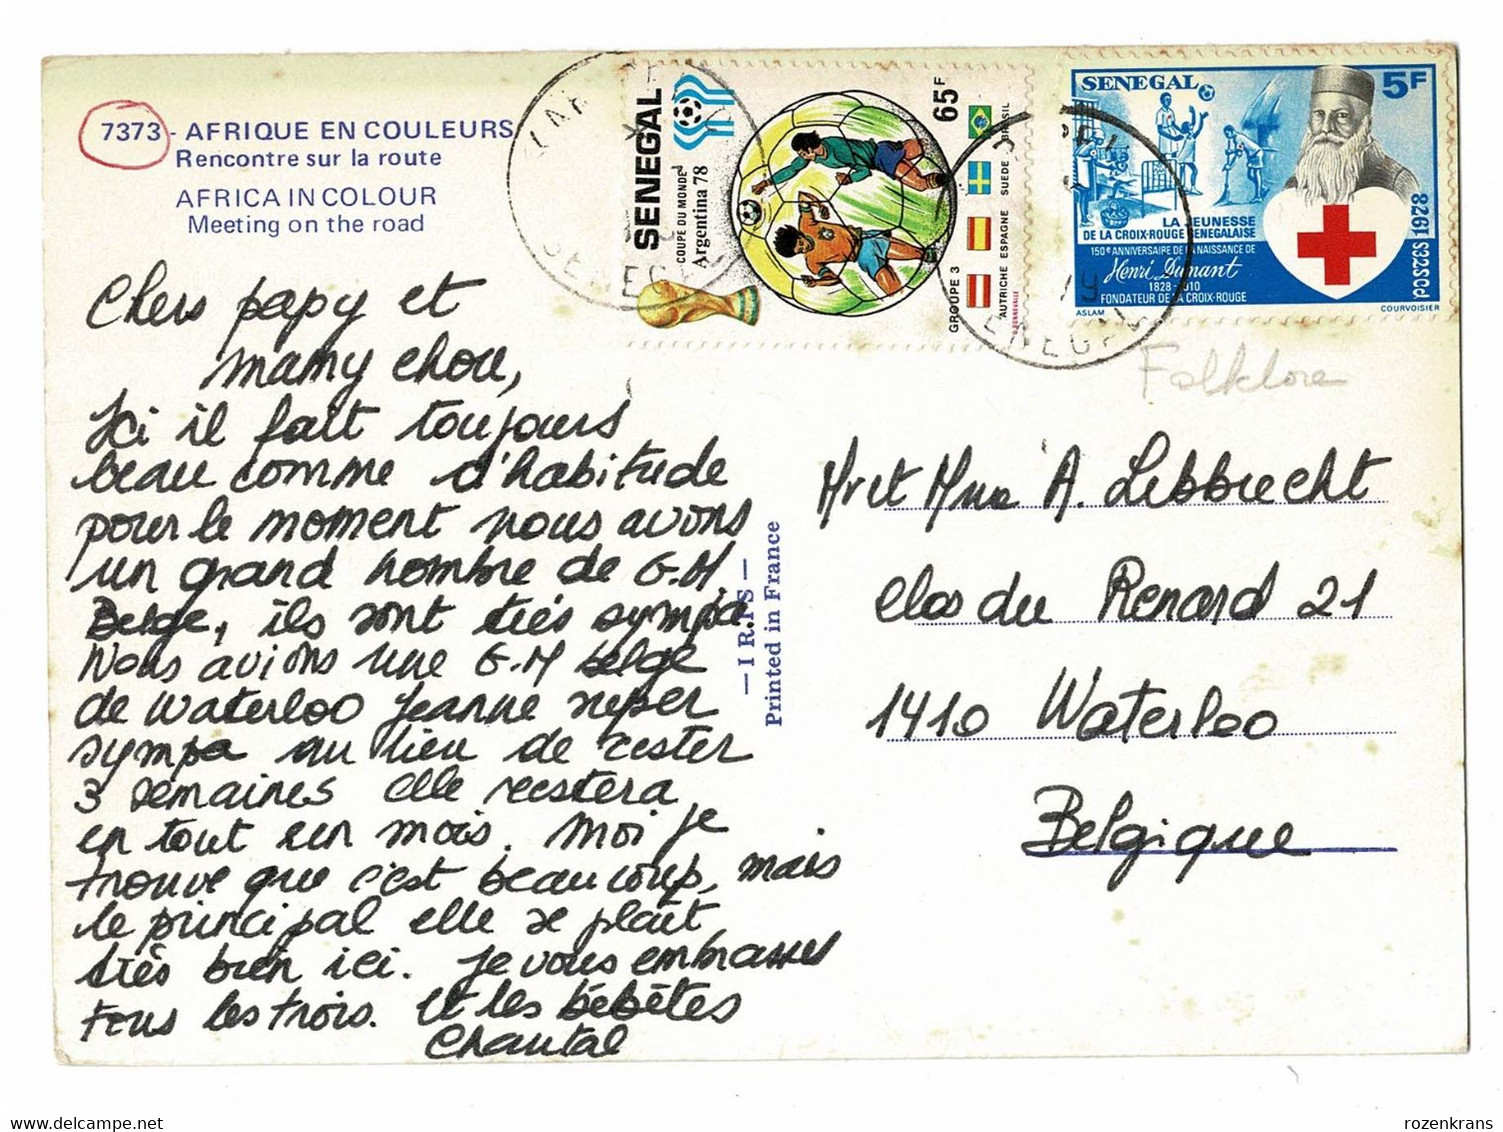 7373 - AFRIQUE EN COULEURS
Rencontre sur la route
AFRICA IN COLOUR
Meeting on the road
Chers papy et
mamy chou,
Ici il fait toujours
beau comme d'habitude
pour le moment nous avons
un grand nombre de G.M
Belge, ils sont très sympa.
Nous avions une G.M belge
de Waterloo Jeanne
sympa au lieu de rester
3 semaines elle restera
en tout un mois. Moi je
trouve que c'est beaucoup, mais
le principal elle se plaît
très bien ici. Je vous embrasses
tous les trois. Et les bébêtes
Chantal
— I R I S —
Printed in France
SENEGAL
COUPE DU MONDE
Argentina 78
65F
GROUPE 3
AUTRICHE ESPAGNE SUEDE BRASIL
SENEGAL
5F
LA JEUNESSE
DE LA CROIX-ROUGE SENEGALAISE
150e ANNIVERSAIRE DE LA NAISSANCE DE
Henri Dunant
1828-1910
FONDATEUR DE LA CROIX-ROUGE
POSTES 1978
ASLAM
COURVOISIER
SENEGAL
SENEGAL
Folklore
Mr et Mme A. Lebbrecht
clos du Renard 21
1410 Waterloo
Belgique
rozenkrans